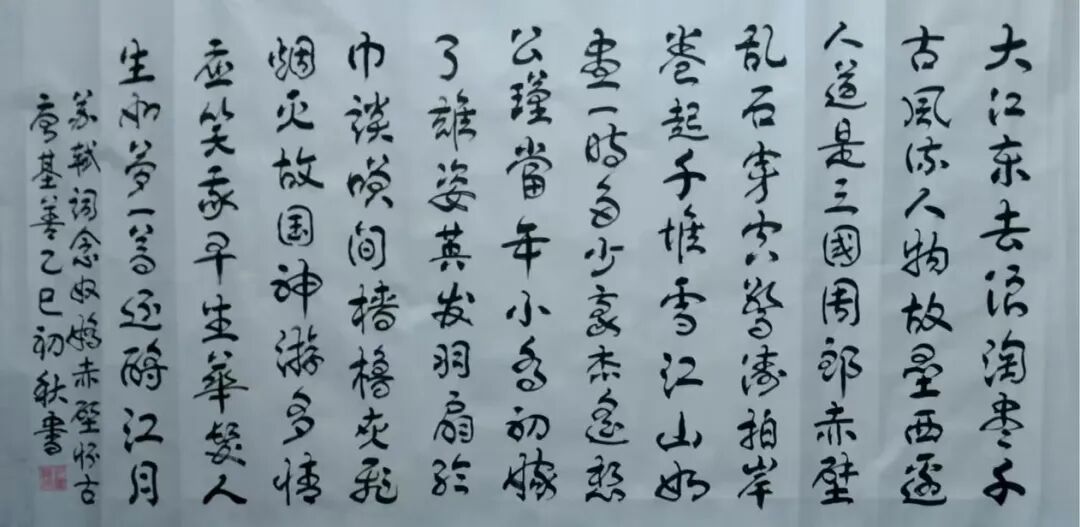 大江东去浪淘尽千
古风流人物故垒西边
人道是三國周郎赤壁
乱石穿空驚涛拍岸
卷起千堆雪江山如
画一時多少豪杰遥想
公瑾當年小乔初嫁
了雄姿英发羽扇纶
巾談笑间樯橹灰飞
烟灭故国神游多情
应笑我早生華髮人
生如梦一尊还酹江月
苏轼词念奴嬌赤壁怀古
唐基善乙巳初秋書